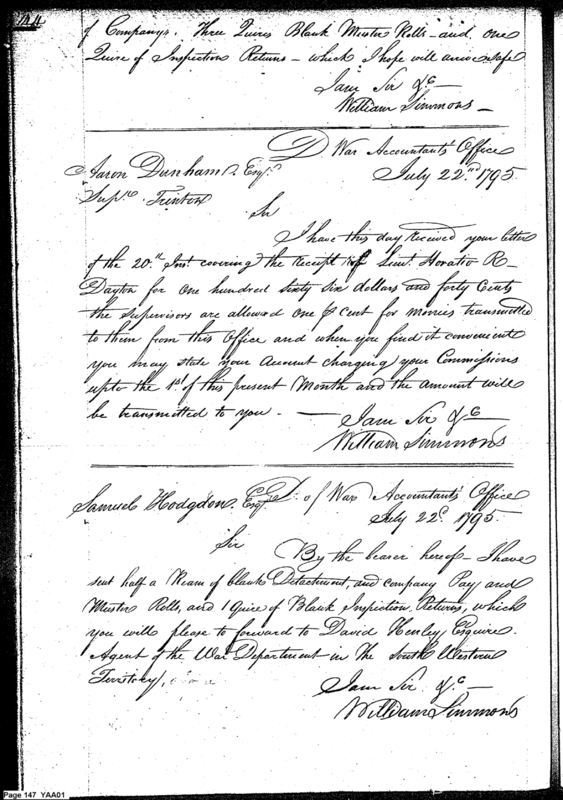 144
of Companys. Three Quires Blank Muster Rolls - and one
Quire of Inspection Returns - which I hope will arive safe
I am Sir &c
William Simmons -
D War Accountants Office
July 22nd 1795
Aaron Dunham Esqr.
Supr. Trinton
Sir
I have this day received your letter
of the 20th Inst. covering the Receipt of Lieut. Horatio R-
Dayton for one hundred sixty six dollars and forty Cents
the Supervisors are allowed one pr Cent for monies transmitted
to them from this Office and when you find it convenient
you may state your Account charging your Commissions
upto the 1st of this present Month and the amount will
be transmitted to you. -
I am Sir &c
William Simmons
Samuel Hodgdon. Esqr. D: of War Accountants Office
July 22d. 1795.
Sir
By the bearer hereof - I have
sent half a Ream of blank Detachment, and company Pay and
Muster Rolls, and 1 Quire of Blank Inspection Returns, which
you will please to forward to David Henley Esquire.
Agent of the War Department in The South Western
Territory,
I am Sir &c -
William Simmons
Page 147 YAA01